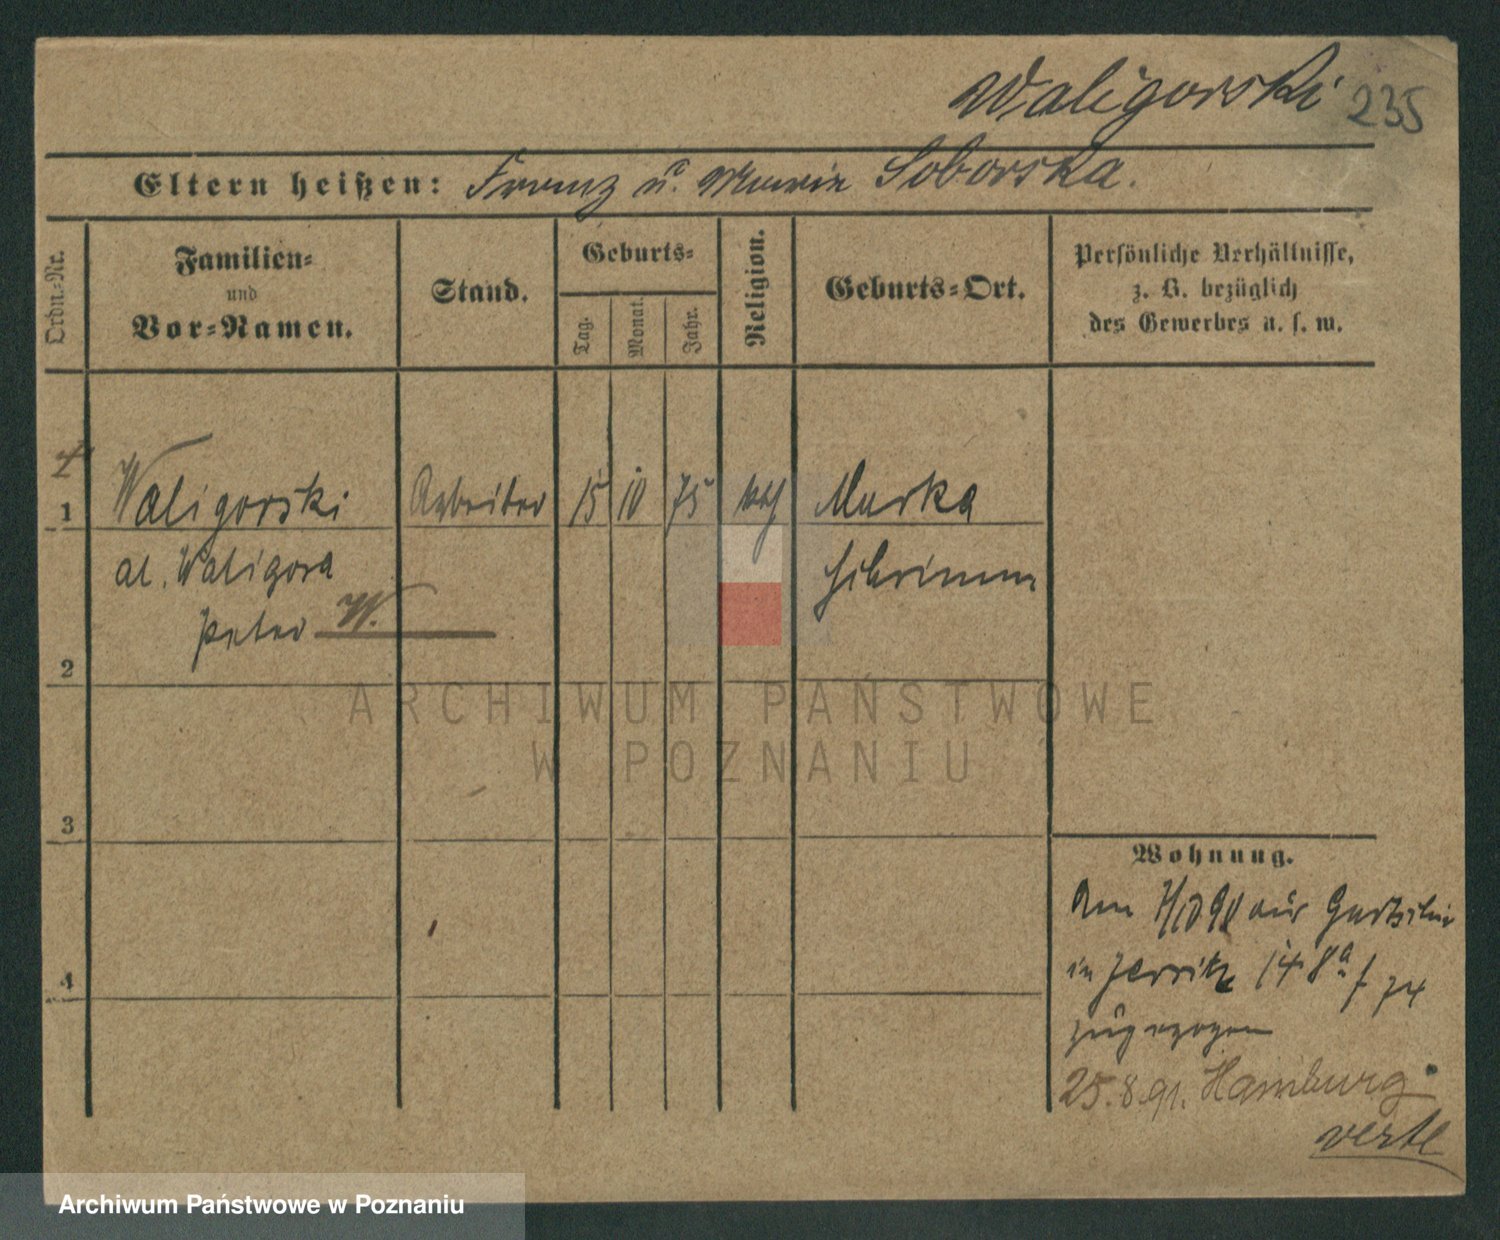 Waligorski 235
Eltern heißen: Franz u. Marie Soborska.
Ordn.-Nr.
Familien-
und
Vor-Namen.
Stand.
Geburts-
Tag.
Monat.
Jahr.
Religion.
Geburts-Ort.
Persönliche Verhältnisse,
z. B. bezüglich
des Gewerbes u. s. w.
1 Waligorski Arbeiter 15 10 75 kath Murka
al. Waligora Schrimm
Peter W.
2
ARCHIWUM PAŃSTWOWE
W POZNANIU
3
Wohnung.
Am 7/10 90 aus
4
in Jersitz 14
zugezogen
25.8.91. Hamburg
verte
Archiwum Państwowe w Poznaniu